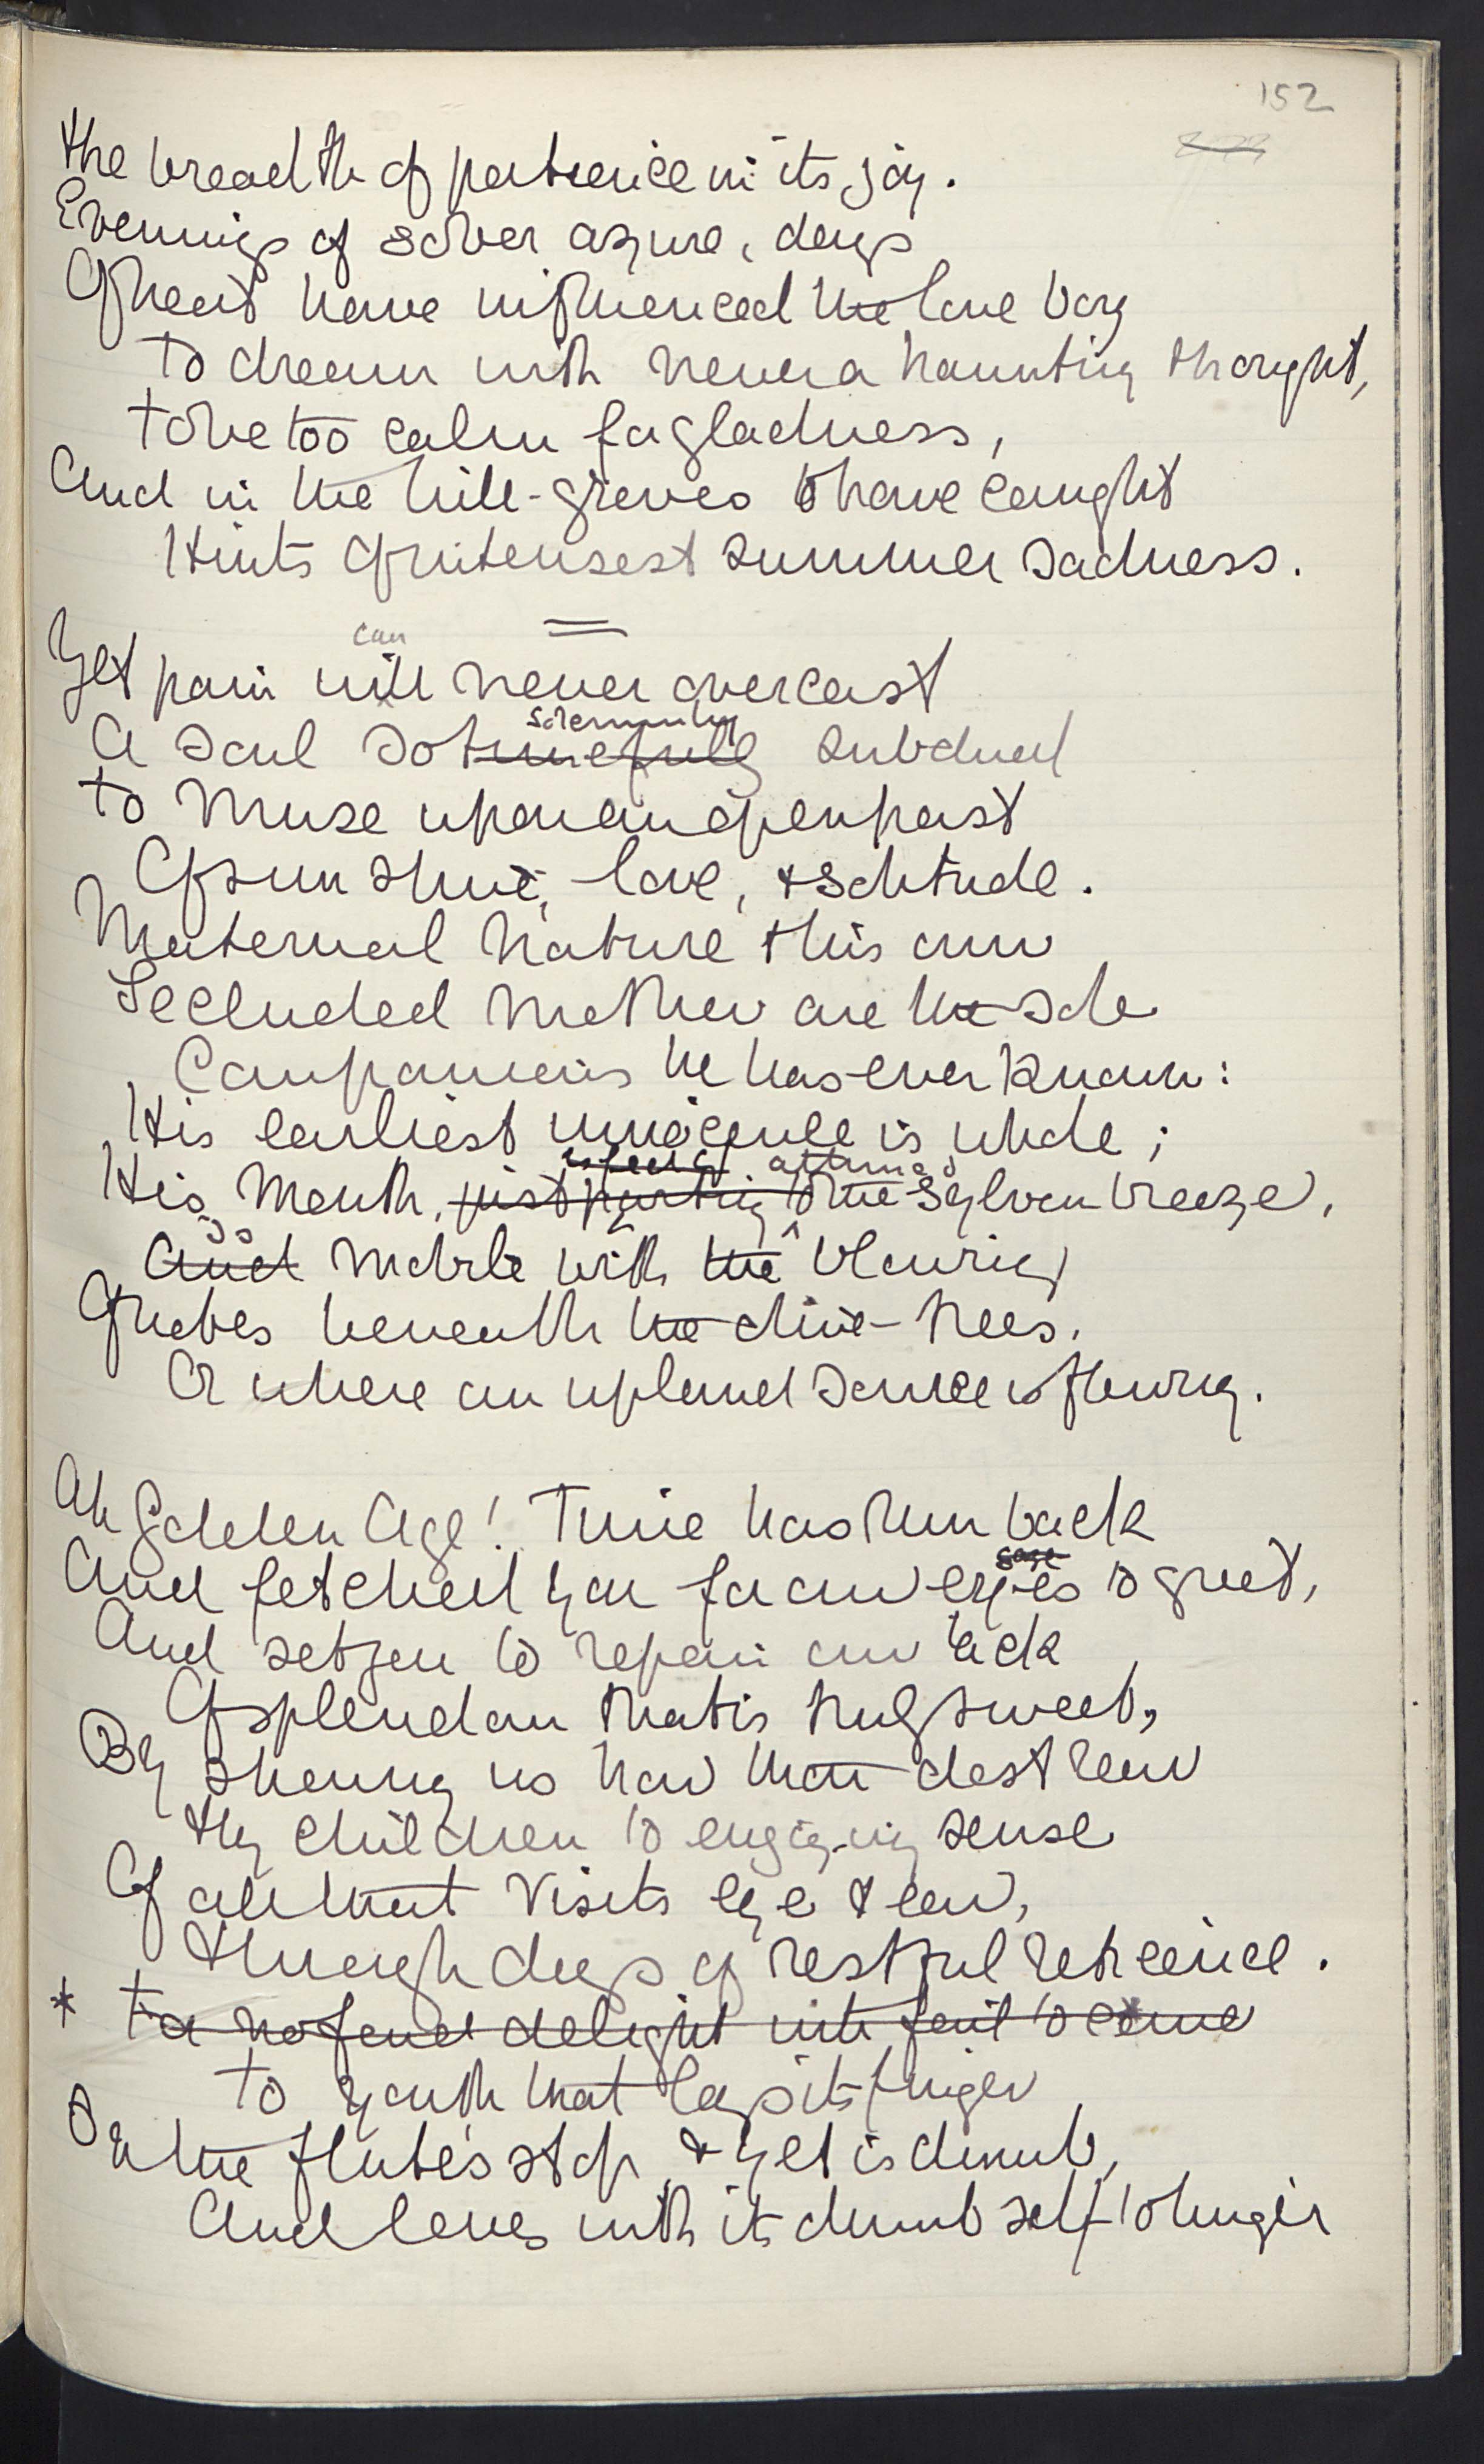 152
the breadth of patience in its joy.
Evenings of sober azure, days
Of heat have influenced the lone boy
To dream with never a haunting thought,
To be too calm for gladness,
And in the hill-groves to have caught
Hints of intensest summer sadness.
can
Yet pain will never overcast
solemnly
A soul so tunefully subdued
To muse upon an open past
Of sunshine, love, & solitude.
Maternal nature & his own
Secluded mother are the sole
Companions he has ever known:
His earliest innocence is whole;
attuned
His mouth, just parting to the sylvan breeze,
Is
And mobile with the blowing
Of reeds beneath the olive-trees.
Or where an upland source is flowing.
Ah Golden Age! Time has run back
sage
And fetched you for our eyes to greet,
And set you to repair our lack
Of splendour that is truly sweet,
By showing us how thou dost rear
Thy children to enjoying sense
Of all that visits eye & ear,
Through days of restful reticence.
* For no fond delight will fail to come
To youth that lays its finger
On the flute's stop & yet is dumb,
And loves with its dumb self to linger